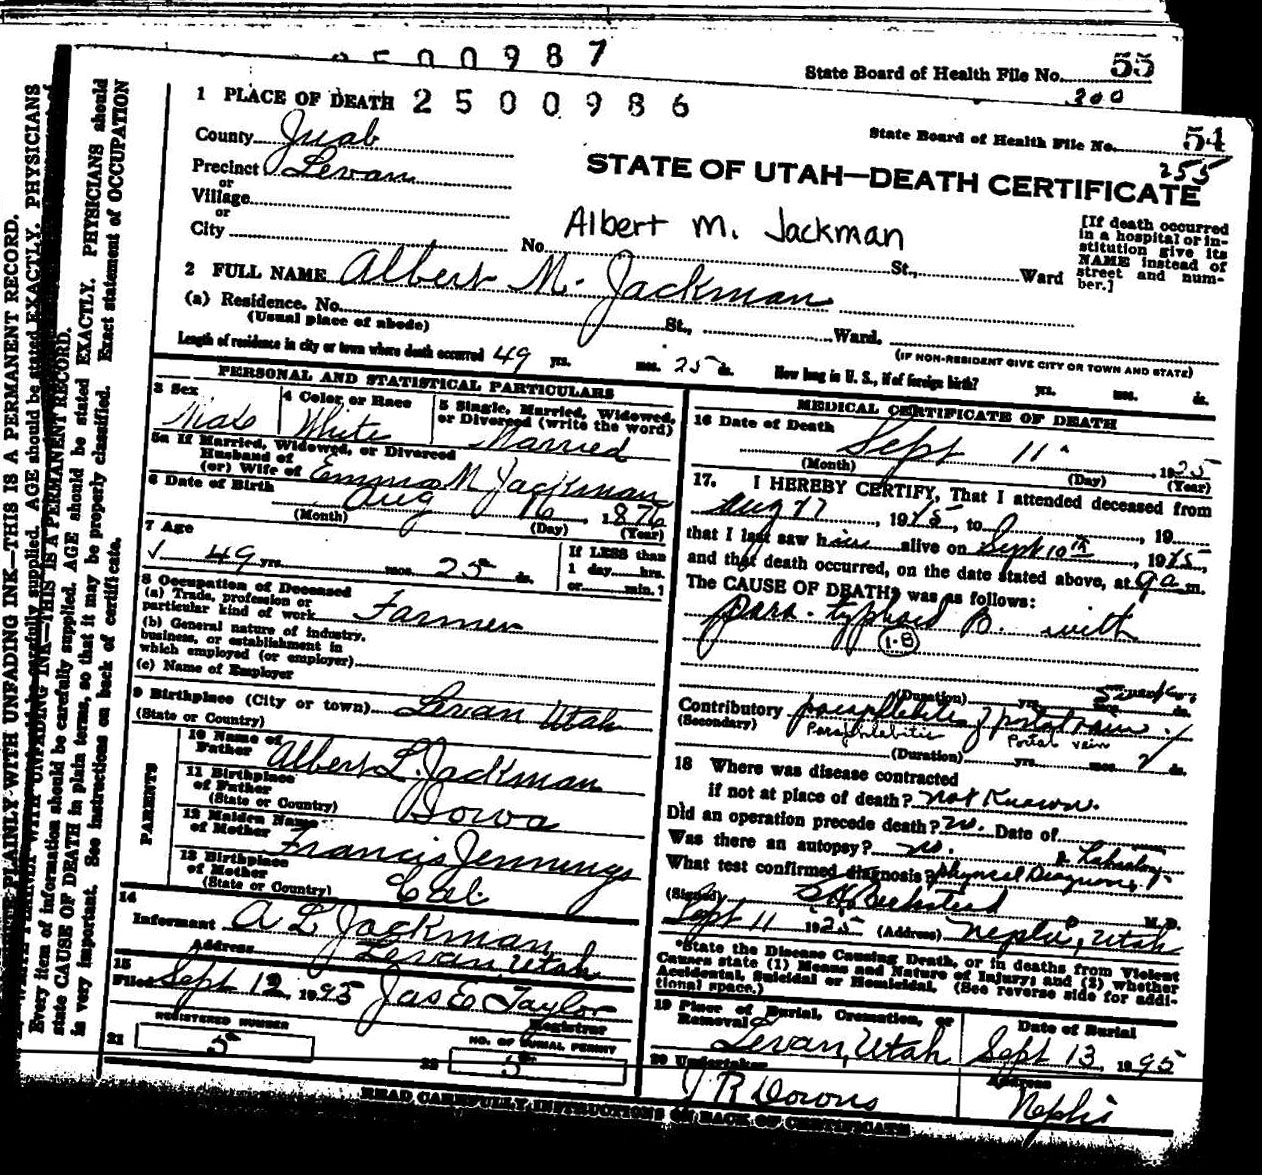 500987
State Board of Health File No. 55
300
1 PLACE OF DEATH 2500986
State Board of Health File No. 54
255
County Juab
STATE OF UTAH—DEATH CERTIFICATE
Precinct Levan
or
Village
or
City No. St., Ward
Albert M. Jackman
[If death occurred
in a hospital or in-
stitution give its
NAME instead of
street and num-
ber.]
2 FULL NAME Albert M. Jackman
(a) Residence. No. St., Ward.
(Usual place of abode)
(IF NON-RESIDENT GIVE CITY OR TOWN AND STATE)
Length of residence in city or town where death occurred 49 yrs. mos. 25 ds. How long in U. S., if of foreign birth? yrs. mos. ds.
PERSONAL AND STATISTICAL PARTICULARS
3 Sex
Male
4 Color or Race
White
5 Single, Married, Widowed,
or Divorced (write the word)
Married
5a If Married, Widowed, or Divorced
Husband of
(or) Wife of Emma M Jackman
6 Date of Birth Aug 16, 1876
(Month) (Day) (Year)
7 Age
49 yrs. mos. 25 ds.
If LESS than
1 day hrs.
or min.?
8 Occupation of Deceased
(a) Trade, profession or
particular kind of work Farmer
(b) General nature of industry,
business, or establishment in
which employed (or employer)
(c) Name of Employer
9 Birthplace (City or town) Levan Utah
(State or Country)
PARENTS
10 Name of
Father Albert L. Jackman
11 Birthplace
of Father
(State or Country) Iowa
12 Maiden Name
of Mother Francis Jennings
13 Birthplace
of Mother
(State or Country) Cal.
14
Informant A L Jackman
Address Levan, Utah
15
Filed Sept 12, 1925 Jas E Taylor
Registrar
21 REGISTERED NUMBER
5
22 NO. OF BURIAL PERMIT
5
MEDICAL CERTIFICATE OF DEATH
16 Date of Death
Sept 11, 1925
(Month) (Day) (Year)
17. I HEREBY CERTIFY, That I attended deceased from
Aug 27, 1925, to , 19
that I last saw him alive on Sept 10th, 1925,
and that death occurred, on the date stated above, at 9 a m.
The CAUSE OF DEATH was as follows:
para. typhoid B. with
1-B
(Duration) yrs. mos. ds.
Contributory paraphlebitis of portal vein.
(Secondary) Paraphlebitis Portal vein
(Duration) yrs. mos. ds.
18 Where was disease contracted
if not at place of death? Not Known.
Did an operation precede death? no. Date of
Was there an autopsy? no.
What test confirmed diagnosis? Physical Diagnosis
(Signed) M.D.
Sept 11 1925 (Address) Nephi, Utah
*State the Disease Causing Death, or in deaths from Violent
Causes state (1) Means and Nature of Injury; and (2) whether
Accidental, Suicidal or Homicidal. (See reverse side for addi-
tional space.)
19 Place of Burial, Cremation, or
Removal
Levan, Utah
Date of Burial
Sept 13, 1925
20 Undertaker
J R Downs
Address
Nephi
READ CAREFULLY INSTRUCTIONS ON BACK OF CERTIFICATE
PLAINLY WITH UNFADING INK—THIS IS A PERMANENT RECORD.
Every item of information should be carefully supplied. AGE should be stated EXACTLY. PHYSICIANS should
state CAUSE OF DEATH in plain terms, so that it may be properly classified. Exact statement of OCCUPATION
is very important. See instructions on back of certificate.